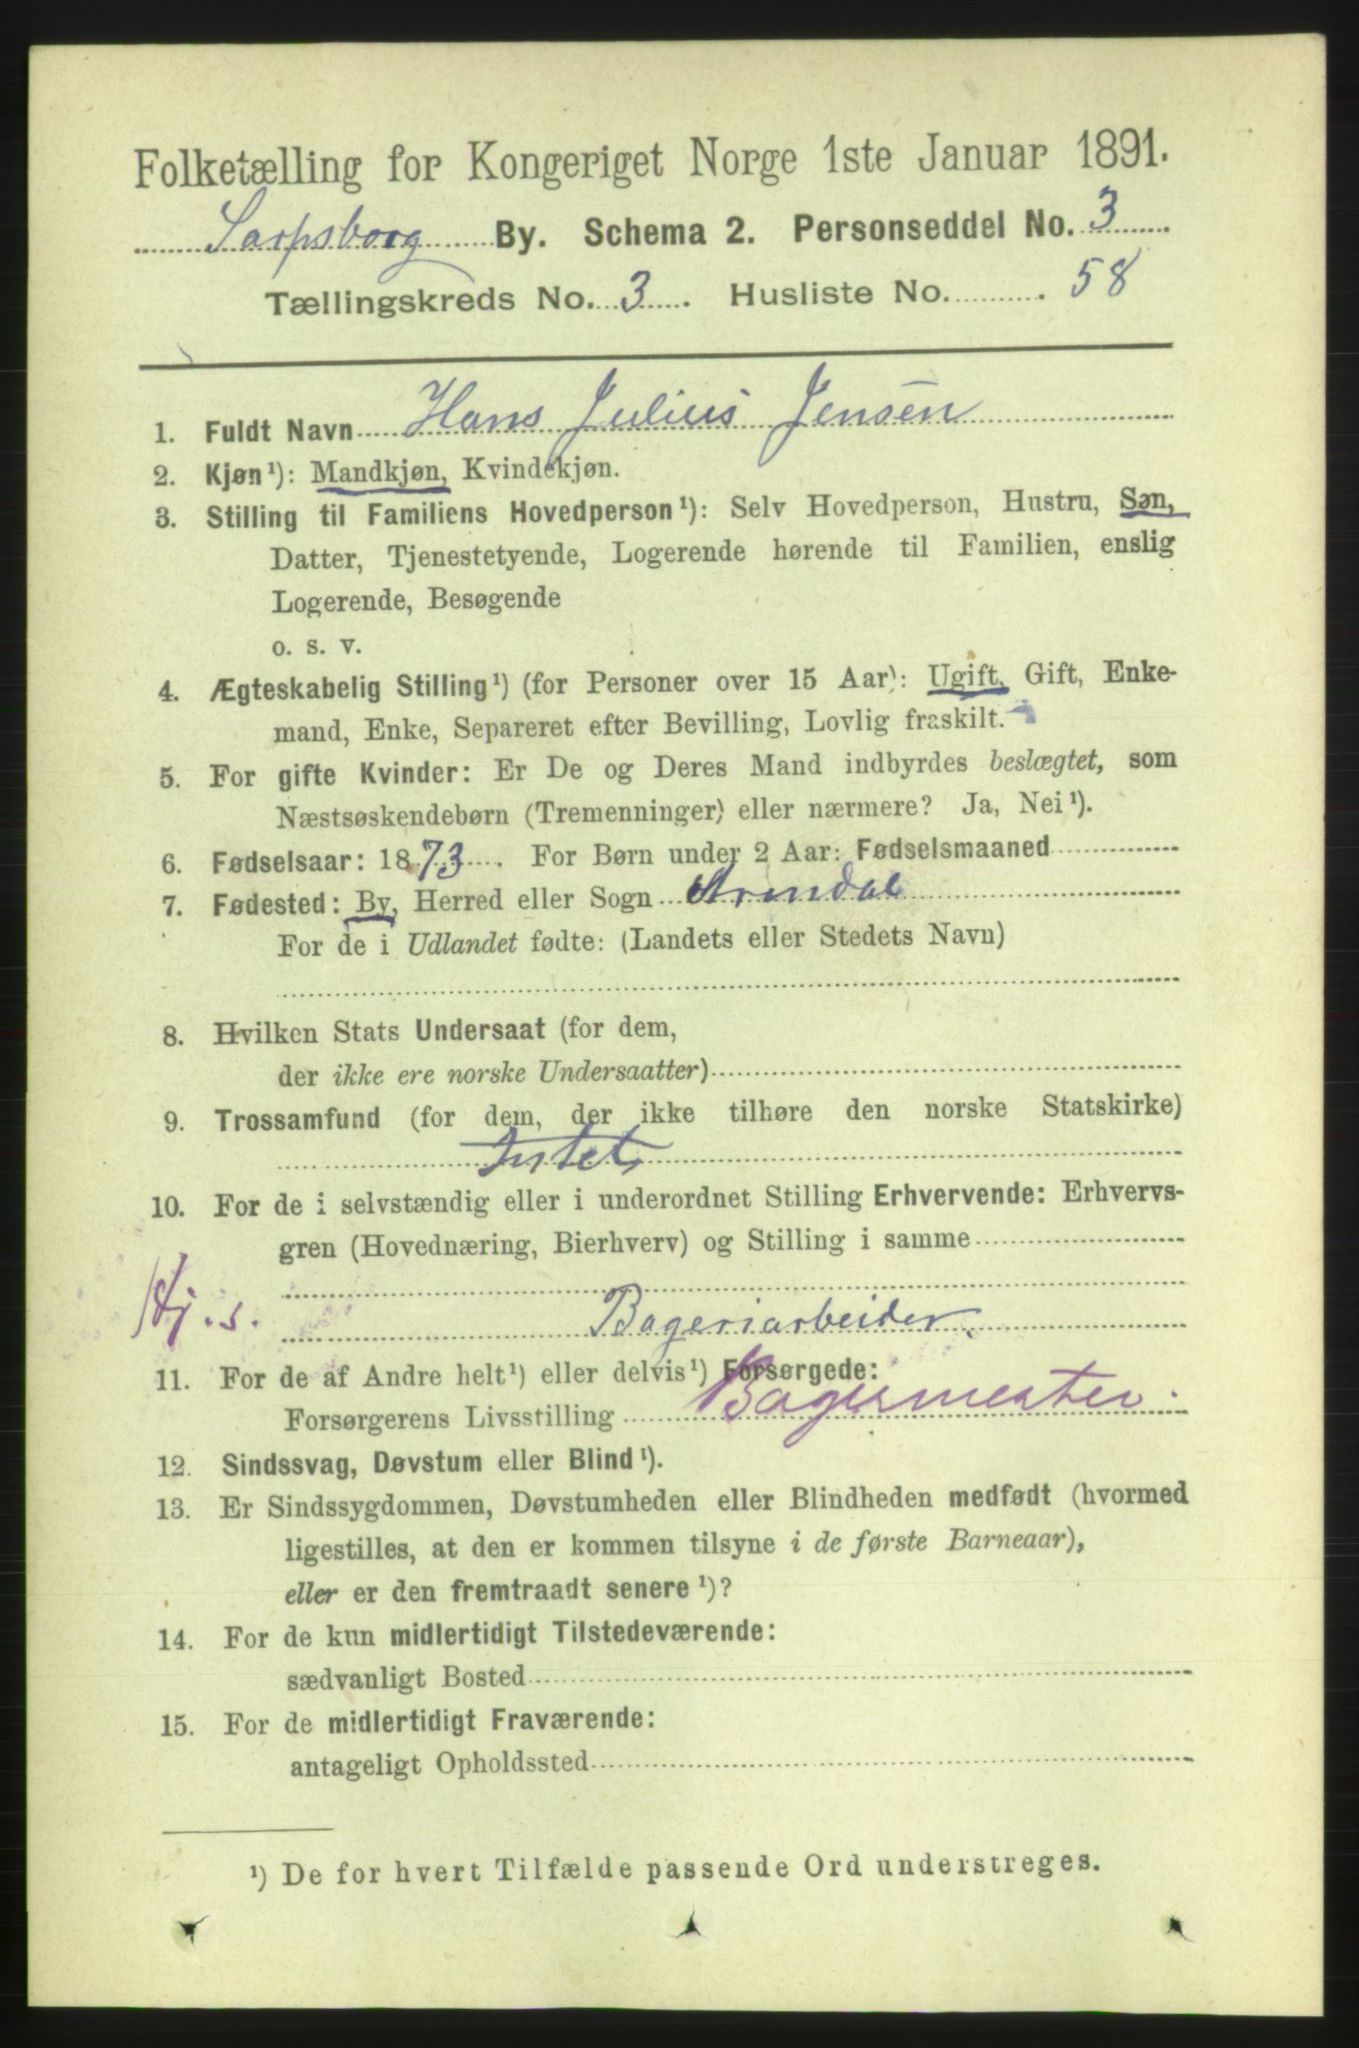 Folketælling for Kongeriget Norge 1ste Januar 1891.
Sarpsborg By. Schema 2. Personseddel No. 3
Tællingskreds No. 3. Husliste No. 58
1. Fuldt Navn Hans Julius Jensen
2. Kjøn¹): Mandkjøn, Kvindekjøn.
3. Stilling til Familiens Hovedperson¹): Selv Hovedperson, Hustru, Søn,
Datter, Tjenestetyende, Logerende hørende til Familien, enslig
Logerende, Besøgende
o. s. v.
4. Ægteskabelig Stilling¹) (for Personer over 15 Aar): Ugift, Gift, Enke-
mand, Enke, Separeret efter Bevilling, Lovlig fraskilt.
5. For gifte Kvinder: Er De og Deres Mand indbyrdes beslægtet, som
Næstsøskendebørn (Tremenninger) eller nærmere? Ja, Nei¹).
6. Fødselsaar: 1873. For Børn under 2 Aar: Fødselsmaaned
7. Fødested: By, Herred eller Sogn Arendal
For de i Udlandet fødte: (Landets eller Stedets Navn)
8. Hvilken Stats Undersaat (for dem,
der ikke ere norske Undersaatter)
9. Trossamfund (for dem, der ikke tilhøre den norske Statskirke)
Intet
10. For de i selvstændig eller i underordnet Stilling Erhvervende: Erhvervs-
gren (Hovednæring, Bierhverv) og Stilling i samme
Hj. s. Bageriarbeider.
11. For de af Andre helt¹) eller delvis¹) Forsørgede:
Forsørgerens Livsstilling Bagermester.
12. Sindssvag, Døvstum eller Blind¹).
13. Er Sindssygdommen, Døvstumheden eller Blindheden medfødt (hvormed
ligestilles, at den er kommen tilsyne i de første Barneaar),
eller er den fremtraadt senere¹)?
14. For de kun midlertidigt Tilstedeværende:
sædvanligt Bosted
15. For de midlertidigt Fraværende:
antageligt Opholdssted
¹) De for hvert Tilfælde passende Ord understreges.